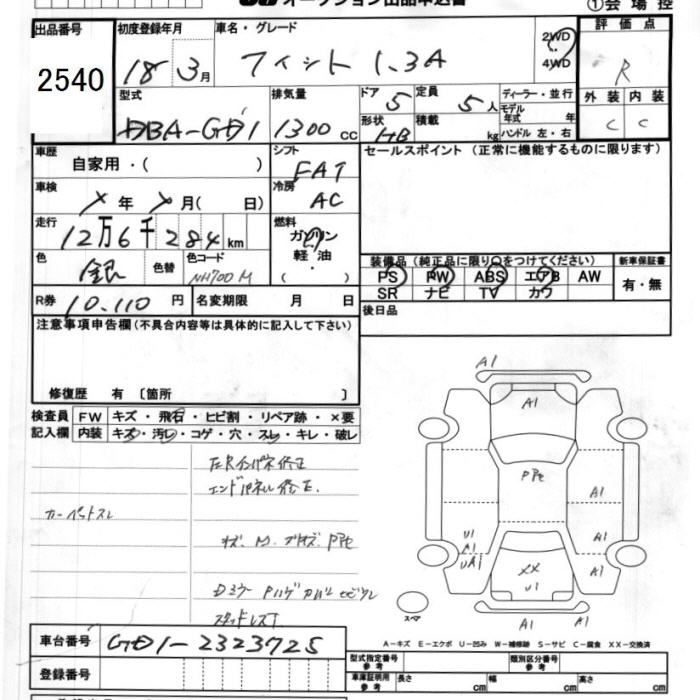 オークション出品申込書
①会場控
出品番号 初度登録年月 車名・グレード 評価点
2540
18 3月 フィット 1.3A 2WD 4WD R
型式 排気量 ドア 定員 ディーラー・並行 外装 内装
DBA-GD1 1300cc 5 5人 モデル年式 年 C C
形状 積載
HB kg ハンドル 左・右
車歴 シフト セールスポイント (正常に機能するものに限ります)
自家用・( ) FAT
車検 冷房
年 月( 日) AC
走行 燃料
12万6千284km ガソリン
軽油
色 色替 色コード ・
銀 NH700M ( )
装備品 (純正品に限り○をつけてください) 新車保証書
PS PW ABS エアB AW 有・無
SR ナビ TV カワ
R券 10,110円 名変期限 月 日 後日品
注意事項申告欄(不具合内容等は具体的に記入して下さい)
修復歴 有 〔箇所 〕
検査員 FW キズ・飛石・ヒビ割・リペア跡・×要
記入欄 内装 キズ・汚レ・コゲ・穴・スレ・キレ・破レ
左Rインパネ修正
エンドパネル修正.
カーペットスレ
キズ. M. PPe
スタッドレス
A1
A1
PPe
A1
U1
A1
A1
A1
XX
U1
A1
A1
スペア
A1 A1
車台番号 GD1-2323725
登録番号
A-キズ E-エクボ U-凹み W-補修跡 S-サビ C-腐食 XX-交換済
型式指定番号 参考 類別区分番号 参考
車庫証明用 参考 長さ cm 幅 cm 高さ cm